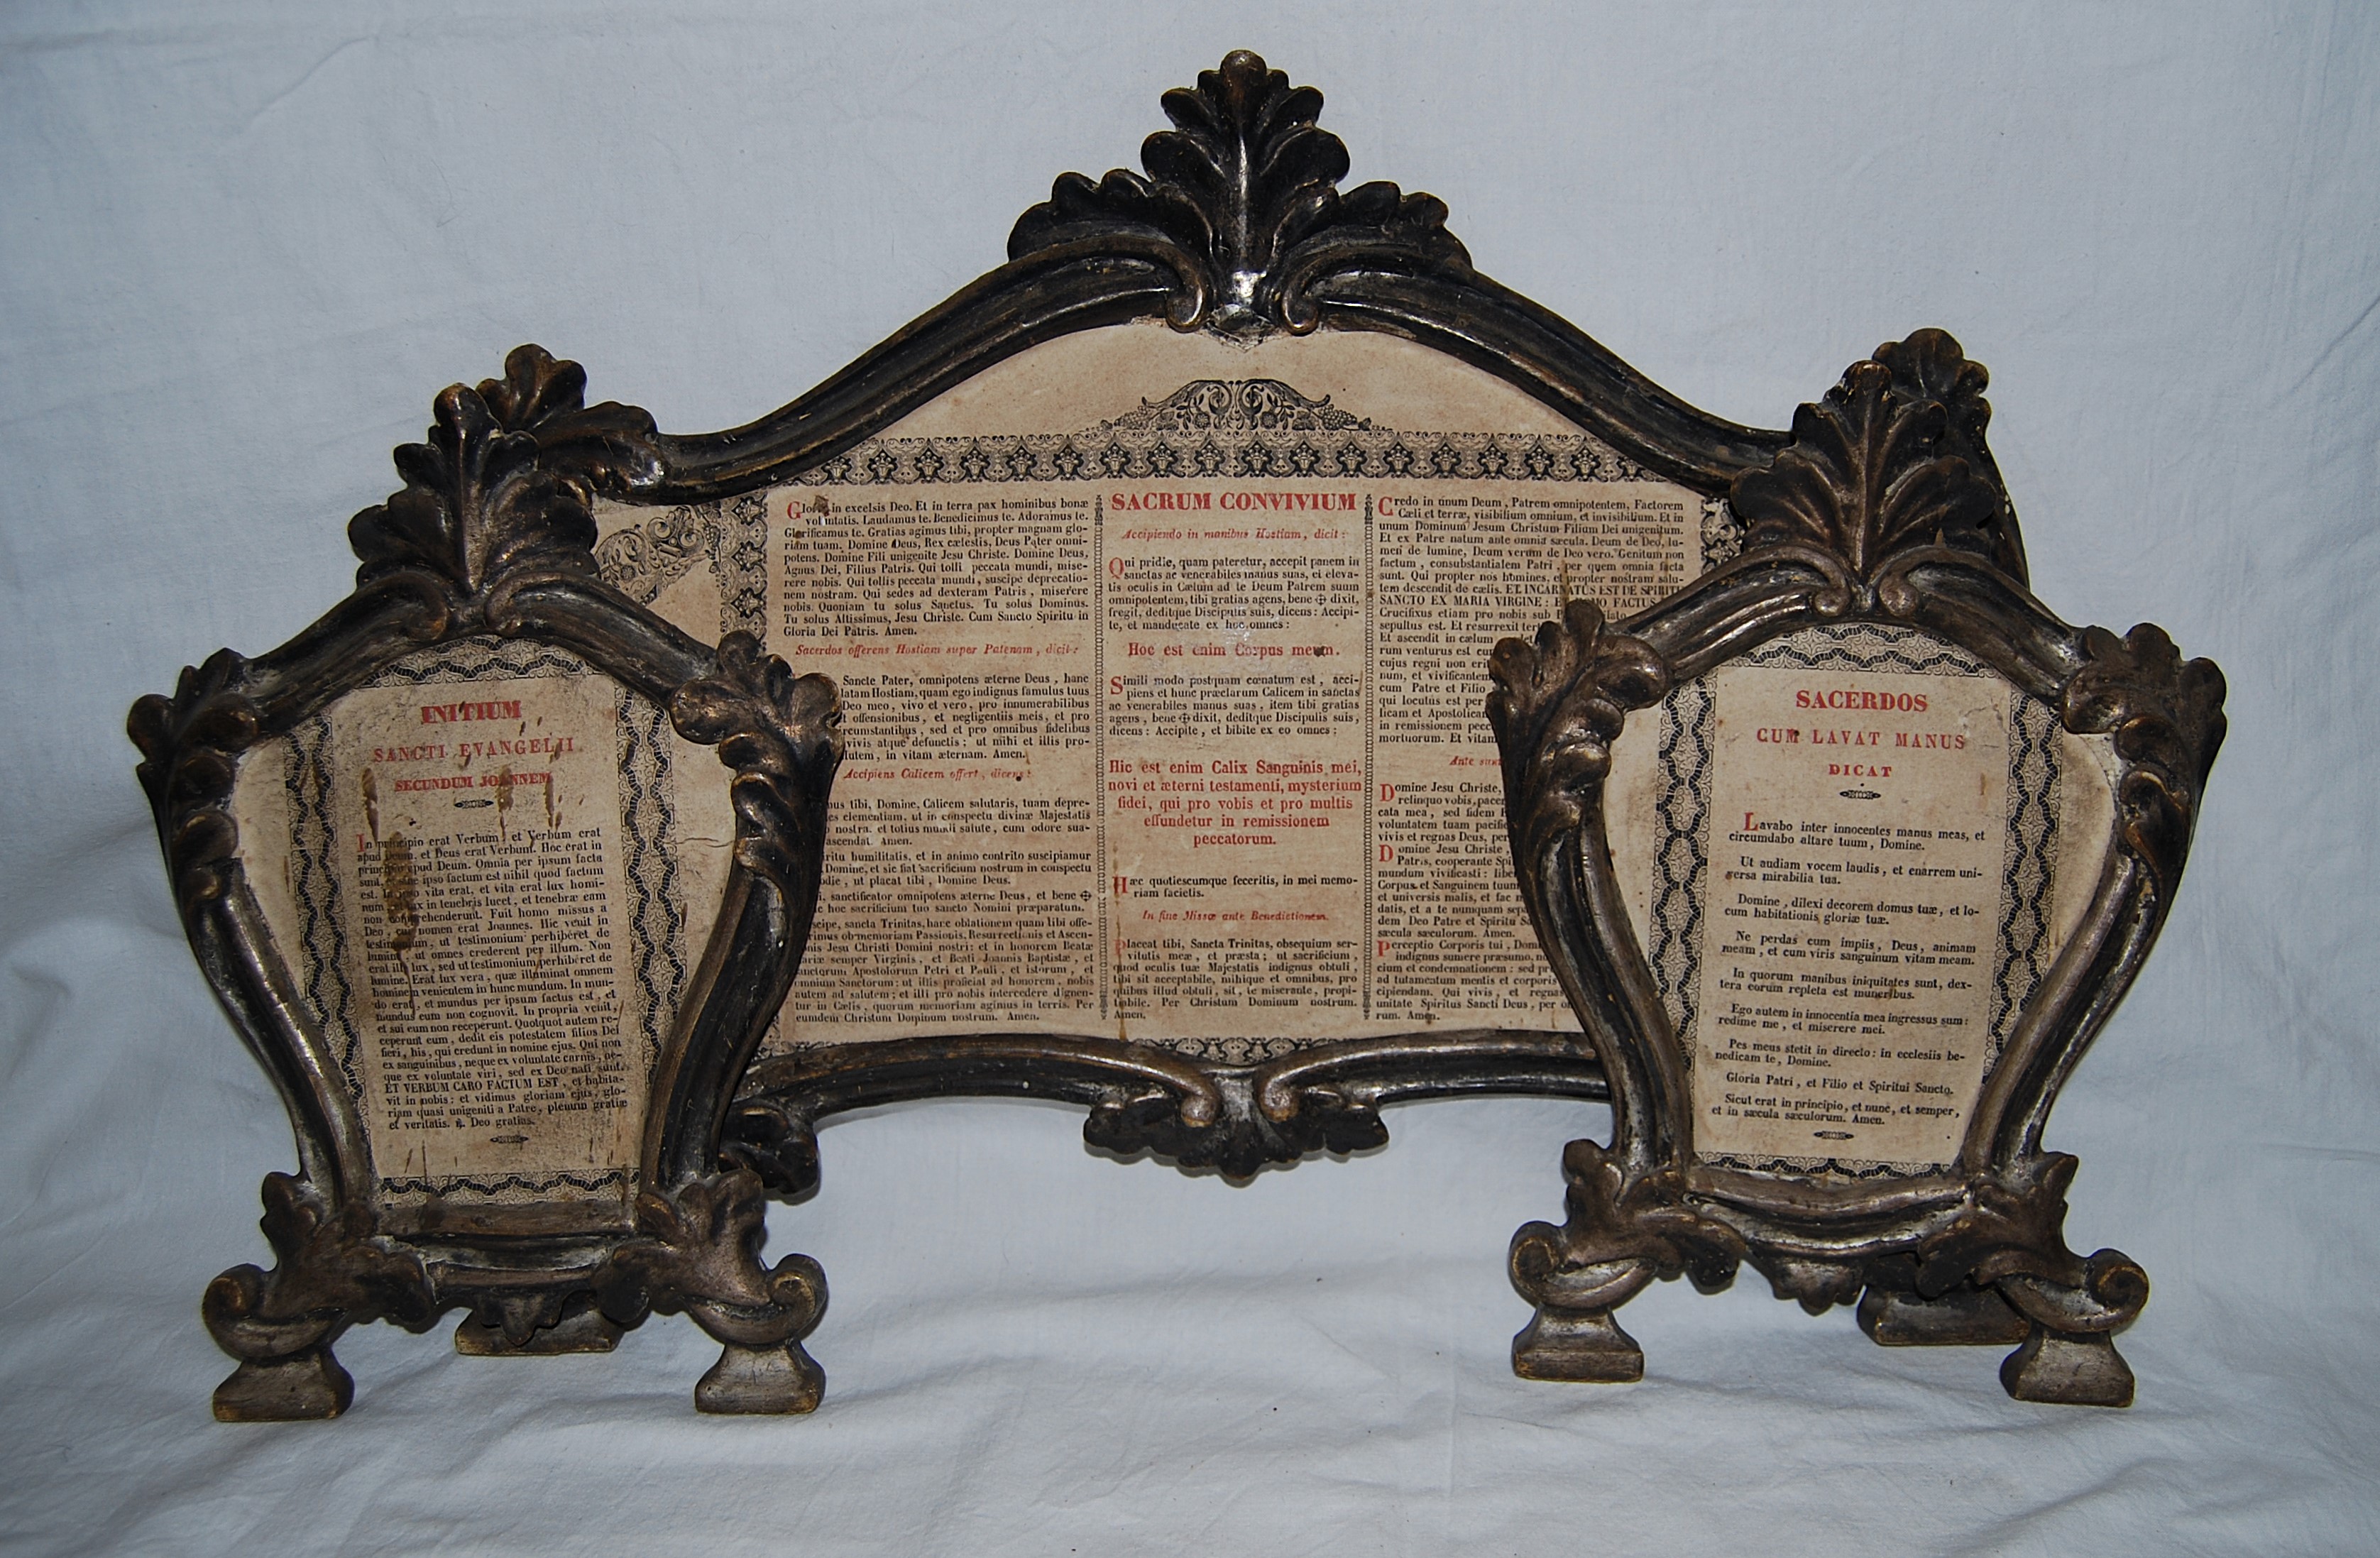 INITIUM
SANCTI EVANGELII
SECUNDUM JOANNEM
In principio erat Verbum, et Verbum erat
apud Deum, et Deus erat Verbum. Hoc erat in
principio apud Deum. Omnia per ipsum facta
sunt, et sine ipso factum est nihil quod factum
est. In ipso vita erat, et vita erat lux homi-
num et lux in tenebris lucet, et tenebræ eam
non comprehenderunt. Fuit homo missus a
Deo, cui nomen erat Joannes. Hic venit in
testimonium, ut testimonium perhiberet de
lumine, ut omnes crederent per illum. Non
erat ille lux, sed ut testimonium perhiberet de
lumine. Erat lux vera, quæ illuminat omnem
hominem venientem in hunc mundum. In mun-
do erat, et mundus per ipsum factus est, et
mundus eum non cognovit. In propria venit,
et sui eum non receperunt. Quotquot autem re-
ceperunt eum, dedit eis potestatem filios Dei
fieri, his, qui credunt in nomine ejus. Qui non
ex sanguinibus, neque ex voluntate carnis, ne-
que ex voluntate viri, sed ex Deo nati sunt.
ET VERBUM CARO FACTUM EST, et habita-
vit in nobis: et vidimus gloriam ejus, glo-
riam quasi unigeniti a Patre, plenum gratiæ
et veritatis. ℟. Deo gratias.
Gloria in excelsis Deo. Et in terra pax hominibus bonæ
voluntatis. Laudamus te. Benedicimus te. Adoramus te.
Glorificamus te. Gratias agimus tibi, propter magnam glo-
riam tuam. Domine Deus, Rex cælestis, Deus Pater omni-
potens. Domine Fili unigenite Jesu Christe. Domine Deus,
Agnus Dei, Filius Patris. Qui tolli peccata mundi, mise-
rere nobis. Qui tollis peccata mundi, suscipe deprecatio-
nem nostram. Qui sedes ad dexteram Patris, miserere
nobis. Quoniam tu solus Sanctus. Tu solus Dominus.
Tu solus Altissimus, Jesu Christe. Cum Sancto Spiritu in
Gloria Dei Patris. Amen.
Sacerdos offerens Hostiam super Patenam, dicit:
Sancte Pater, omnipotens æterne Deus, hanc
latam Hostiam, quam ego indignus famulus tuus
Deo meo, vivo et vero, pro innumerabilibus
offensionibus, et negligentiis meis, et pro
rcumstantibus, sed et pro omnibus fidelibus
vivis atque defunctis; ut mihi et illis pro-
lutem, in vitam æternam. Amen.
Accipiens Calicem offert, dicens:
mus tibi, Domine, Calicem salutaris, tuam depre-
es clementiam, ut in conspectu divinæ Majestatis
nostra, et totius mundi salute, cum odore sua-
ascendat. Amen.
ritu humilitatis, et in animo contrito suscipiamur
Domine, et sic fiat sacrificium nostrum in conspectu
die, ut placat tibi, Domine Deus.
i, sanctificator omnipotens æterne Deus, et bene ✠
c hoc sacrificium tuo sancto Nomini præparatum.
cipe, sancta Trinitas, hanc oblationem quam tibi offe-
rimus ob memoriam Passionis, Resurrectionis et Ascen-
nis Jesu Christi Domini nostri: et in honorem Beatæ
ariæ semper Virginis, et Beati Joannis Baptistæ, et
anctorum Apostolorum Petri et Pauli, et istorum, et
omnium Sanctorum: ut illis proficiat ad honorem, nobis
autem ad salutem; et illi pro nobis intercedere dignen-
tur in Cælis, quorum memoriam agimus in terris. Per
eumdem Christum Dominum nostrum. Amen.
SACRUM CONVIVIUM
Accipiendo in manibus Hostiam, dicit:
Qui pridie, quam pateretur, accepit panem in
sanctas ac venerabiles manus suas, et eleva-
tis oculis in Cælum ad te Deum Patrem suum
omnipotentem, tibi gratias agens, bene ✠ dixit,
fregit, deditque Discipulis suis, dicens: Accipi-
te, et manducate ex hoc omnes:
Hoc est enim Corpus meum.
Simili modo postquam cœnatum est, acci-
piens et hunc præclarum Calicem in sanctas
ac venerabiles manus suas, item tibi gratias
agens, bene ✠ dixit, deditque Discipulis suis,
dicens: Accipite, et bibite ex eo omnes:
Hic est enim Calix Sanguinis mei,
novi et æterni testamenti, mysterium
fidei, qui pro vobis et pro multis
effundetur in remissionem
peccatorum.
Hæc quotiescumque feceritis, in mei memo-
riam facietis.
In fine Missæ ante Benedictionem.
Placeat tibi, Sancta Trinitas, obsequium ser-
vitutis meæ, et præsta; ut sacrificium,
quod oculis tuæ Majestatis indignus obtuli,
tibi sit acceptabile, mihique et omnibus, pro
quibus illud obtuli, sit, te miserante, propi-
tiabile. Per Christum Dominum nostrum.
Amen.
Credo in unum Deum, Patrem omnipotentem, Factorem
Cæli et terræ, visibilium omnium, et invisibilium. Et in
unum Dominum Jesum Christum Filium Dei unigenitum.
Et ex Patre natum ante omnia sæcula. Deum de Deo, lu-
men de lumine, Deum verum de Deo vero. Genitum non
factum, consubstantialem Patri, per quem omnia facta
sunt. Qui propter nos homines, et propter nostram salu-
tem descendit de cælis. ET INCARNATUS EST DE SPIRITU
SANCTO EX MARIA VIRGINE: ET HOMO FACTUS
Crucifixus etiam pro nobis sub Pilato
sepultus est. Et resurrexit tert
Et ascendit in cælum
rum venturus est cum
cujus regni non erit
num, et vivificantem
cum Patre et Filio
qui locutus est per
licam et Apostolicam
in remissionem pecc
mortuorum. Et vitam
Ante sum
Domine Jesu Christe,
relinquo vobis, pacem
cata mea, sed fidem
voluntatem tuam pacific
vivis et regnas Deus, per
Domine Jesu Christe,
Patris, cooperante Spi
mundum vivificasti: libe
Corpus et Sanguinem tuum
et universis malis, et fac m
datis, et a te numquam sep
dem Deo Patre et Spiritu Sa
sæcula sæculorum. Amen.
Perceptio Corporis tui, Dom
indignus sumere præsumo, no
cium et condemnationem: sed pr
ad tutamentum mentis et corporis
cipiendam. Qui vivis, et regnas
unitate Spiritus Sancti Deus, per o
rum. Amen.
SACERDOS
CUM LAVAT MANUS
DICAT
Lavabo inter innocentes manus meas, et
circumdabo altare tuum, Domine.
Ut audiam vocem laudis, et enarrem uni-
versa mirabilia tua.
Domine, dilexi decorem domus tuæ, et lo-
cum habitationis gloriæ tuæ.
Ne perdas cum impiis, Deus, animam
meam, et cum viris sanguinum vitam meam.
In quorum manibus iniquitates sunt, dex-
tera eorum repleta est muneribus.
Ego autem in innocentia mea ingressus sum:
redime me, et miserere mei.
Pes meus stetit in directo: in ecclesiis be-
nedicam te, Domine.
Gloria Patri, et Filio et Spiritui Sancto.
Sicut erat in principio, et nunc, et semper,
et in sæcula sæculorum. Amen.